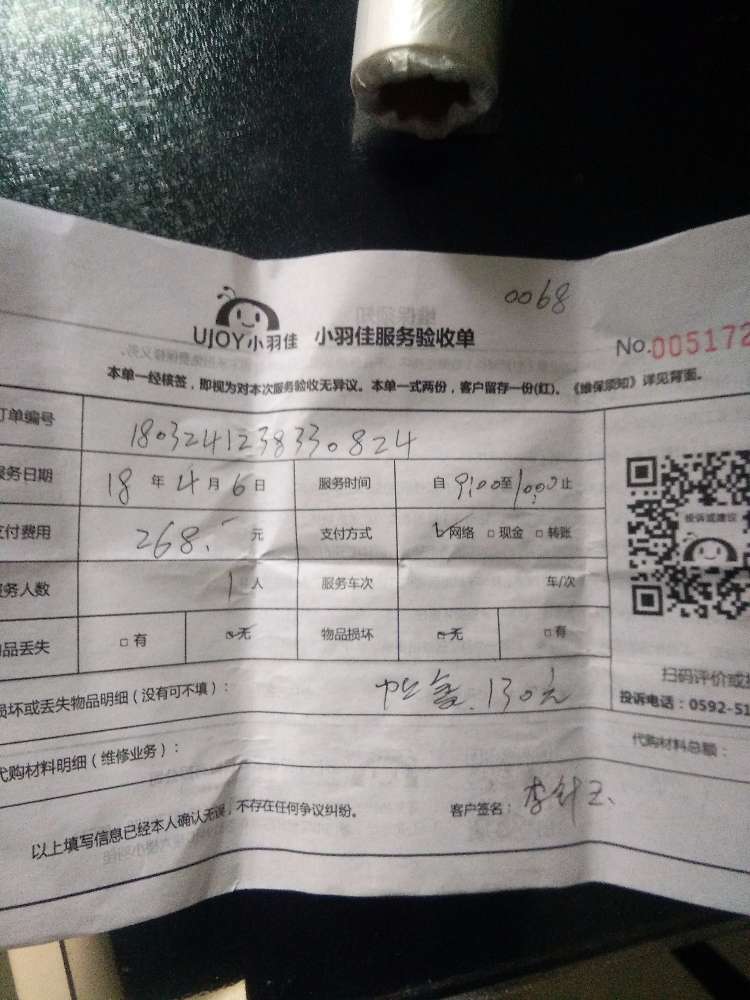 0068
UJOY小羽佳 小羽佳服务验收单 No.005172
本单一经核签，即视为对本次服务验收无异议。本单一式两份，客户留存一份(红)。《维保须知》详见背面。
订单编号 1803241238330824
服务日期 18 年 4 月 6 日 服务时间 自 9:00 至 10:00 止
支付费用 268. 元 支付方式 网络 □ 现金 □ 转账
服务人数 1 人 服务车次 车/次
物品丢失 □ 有 无 物品损坏 无 □ 有
投诉或建议
扫码评价或投
投诉电话：0592-51
损坏或丢失物品明细（没有可不填）： 130元
代购材料明细（维修业务）： 代购材料总额：
以上填写信息已经本人确认无误，不存在任何争议纠纷。 客户签名：